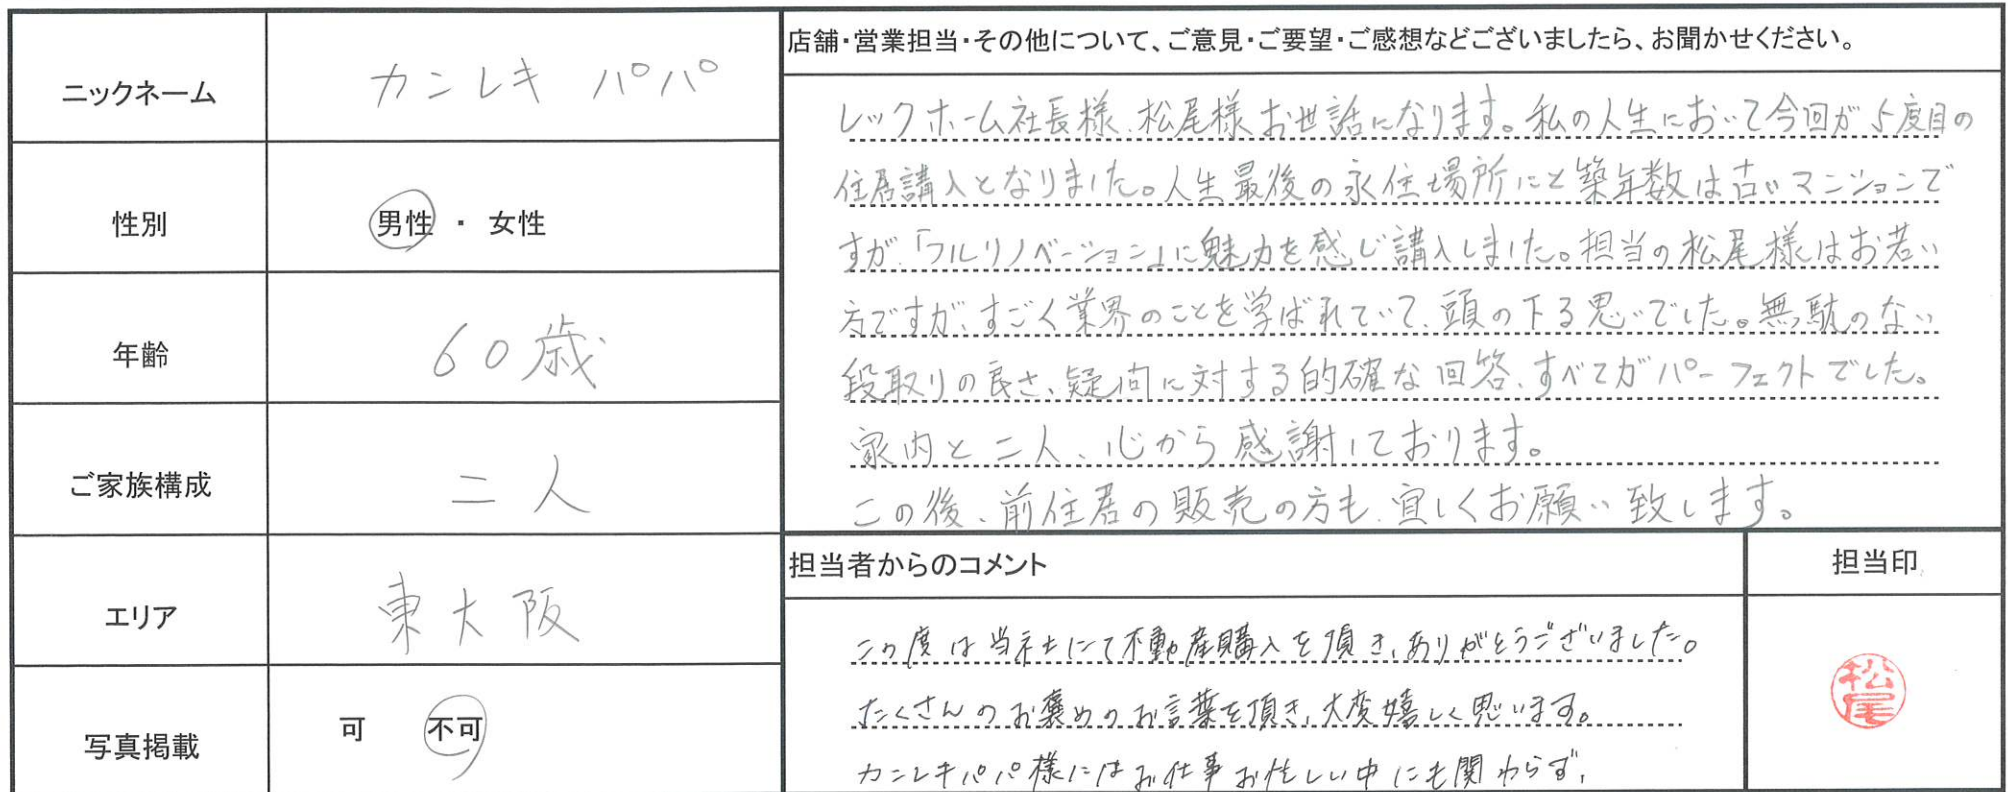 ニックネーム
カンレキ パパ
性別
男性 ・ 女性
年齢
60歳
ご家族構成
二人
エリア
東大阪
写真掲載
可 不可
店舗・営業担当・その他について、ご意見・ご要望・ご感想などございましたら、お聞かせください。
レックホーム社長様、松尾様お世話になります。私の人生において今回が5度目の
住居講入となりました。人生最後の永住場所にと築年数は古いマンションで
すが、「フルリノベーション」に魅力を感じ講入しました。担当の松尾様はお若い
方ですが、すごく業界のことを学ばれていて、頭の下る思いでした。無駄のない
段取りの良さ、疑問に対する的確な回答、すべてがパーフェクトでした。
家内と二人、心から感謝しております。
この後、前住居の販売の方も、宜しくお願い致します。
担当者からのコメント
この度は当社にて不動産購入を頂き、ありがとうございました。
たくさんのお褒めのお言葉を頂き、大変嬉しく思います。
カンレキパパ様にはお仕事お忙しい中にも関わらず、
担当印
松尾